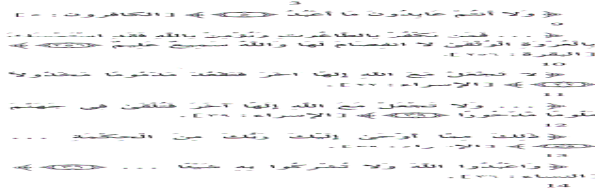 3
﴿ ولا أنتم عابدون ما أعبد ﴾ [ الكافرون : ٥ ]
9
﴿ ... فمن يكفر بالطاغوت ويؤمن بالله فقد استمسك
بالعروة الوثقى لا انفصام لها والله سميع عليم ﴾
[ البقرة : ٢٥٦ ].
10
﴿ لا تجعل مع الله إلها آخر فتقعد مذموما مخذولا
﴾ [ الإسراء : ٢٢ ].
11
﴿ ... ولا تجعل مع الله إلها آخر فتلقى في جهنم
ملوما مدحورا ﴾ [ الإسراء : ٣٩ ].
12
﴿ ذلك مما أوحى إليك ربك من الحكمة ...
﴾
13
﴿ واعبدوا الله ولا تشركوا به شيئا ... ﴾
[ النساء : ٣٦ ].
14